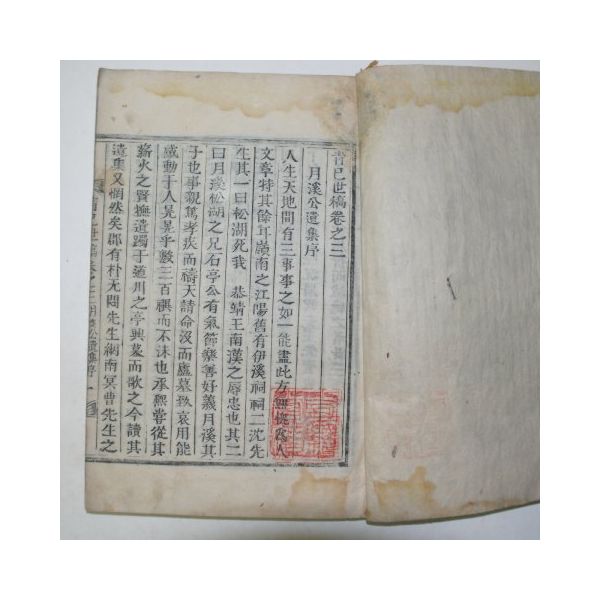 靑己世稿卷之三
月溪公遺集序
人生天地間有三事事之如一能盡此方無愧爲人
文章特其餘耳嶺南之江陽舊有伊溪祠祠二沈先
生其一曰松湖死我 恭靖王南漢之辱忠也其二
曰月溪松湖之兄石亭公有氣節樂善好義月溪其
子也事親篤孝疾而禱天請命沒而廬墓致哀用能
感動于人晃晃乎數三百禩而不沬也承熙嘗從其
薪火之賢撫遺躅于道川之亭興慕而歌之今讀其
遺集又惘然矣郡有朴无悶先生 南冥曹先生之
靑己世稿卷之三 月溪公遺集序 一